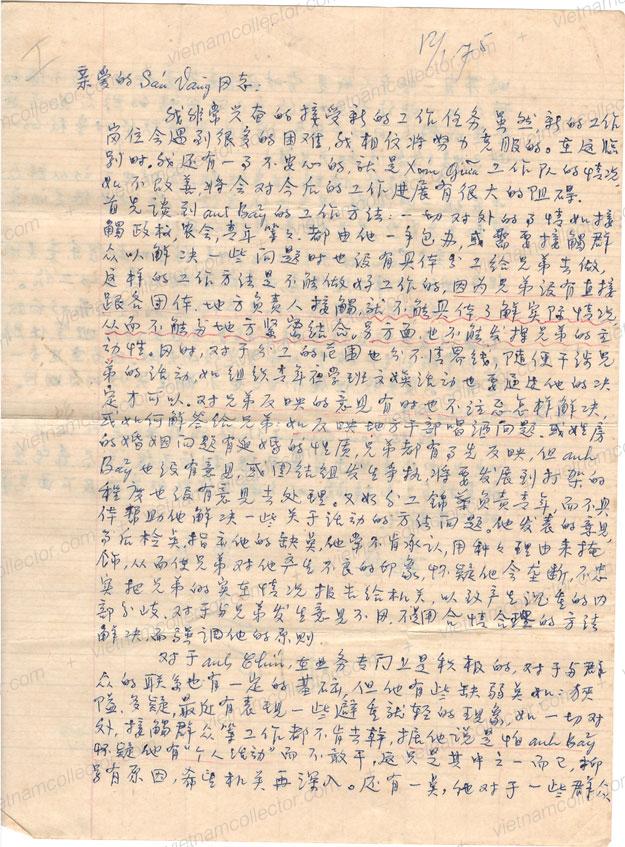 I
12/1 75
亲爱的 Sáu Vàng 同志:
我非常兴奋的接受新的工作任务虽然新的工作
岗位会遇到很多的困难,我相信将努力克服的。在这临
别时,我还有一个不安心的,就是 Xóm Giữa 工作队的情况
如不改善将会对今后的工作进展有很大的阻碍。
首先谈到 anh Bảy 的工作方法:一切对外的事情如接
觸政权,农会,青年等々.都由他一手包办,或需要接觸群
众以解决一些问题时也没有具体分工给兄弟去做,
这样的工作方法是不能做好工作的,因为兄弟没有直接
跟各团体.地方负责人接觸,就不能具体了解实际情况
从而不能与地方紧密结合。另方面,也不能发挥兄弟的主
动性。同时,对于分工的范围也分不清界线,随便干涉兄
弟的活动,如组织青年 学班文娱活动也要通过他的决
定才可以。对兄弟反映的意见有时也不注意怎样解决,
或如何解答给兄弟:如反映地方干部喝酒问题.或姓房
的婚姻问题有逼婚的性质,兄弟都有了先反映,但 anh
Bảy 也没有意见,或团结组发生争执,将要发展到打架的
程度也没有意见去处理。又如分工锦 负责青年,而不具
体帮助他解决一些关于活动的方法问题。他发表的意见
事后检失,指示他的缺点他常不肯承认,用种々理由来掩
饰,从而使兄弟对他产生不良的印象,怀疑他会垄断,不忠
实把兄弟的实在情况报告给机关,以致产生沉重的内
部分歧.对于与兄弟发生意见不同,不运用合情合理的方法
解决,而强调他的原则.
对于 anh Chín,在业务专向上是积极的,对于与群
众的联系也有一定的基础,但他有些缺弱点如:狭
隘.多疑,最近有表现一些避重就轻的现象,如一切对
外,接觸群众等工作都不肯去幹,据他说是怕 anh Bảy
怀疑他有“个人活动”而不敢干,这只是其中之一而已,抑
另有原因,希望机关再深入。还有一点,他对于一些群众
vietnamcollector.com